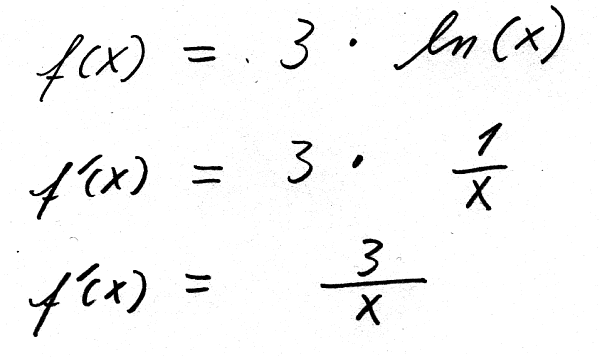 f(x) = 3 · ln(x)
f'(x) = 3 · 1/x
f'(x) = 3/x